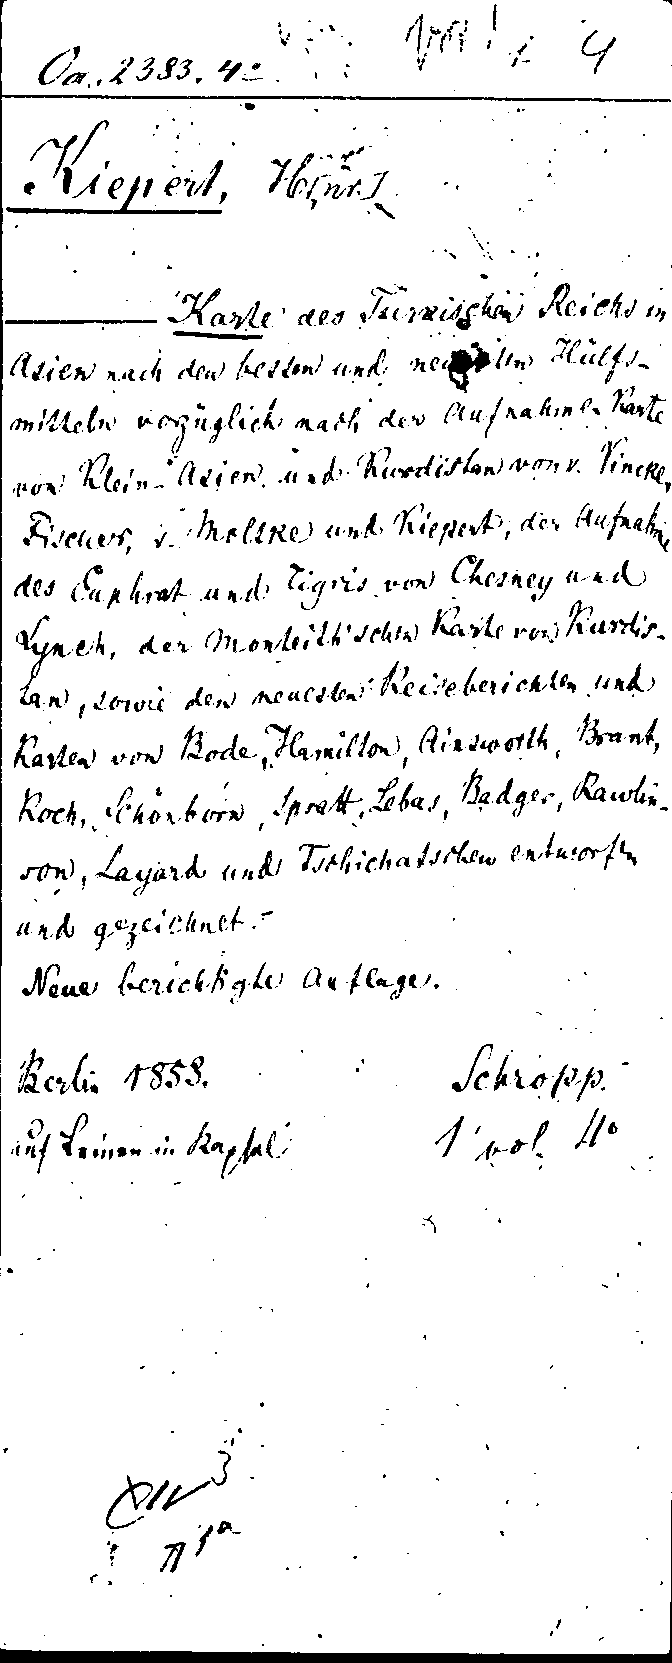 Oa. 2383. 4°
Kiepert, H[nr.]
Karte des Turkischen Reichs in
Asien nach den besten und neuesten Hülfs-
mitteln vorzüglich nach der Aufnahme-Karte
von Klein-Asien und Kurdistan von v. Vincke,
Fischer, v. Moltke und Kiepert, der Aufnahme
des Euphrat und Tigris von Chesney und
Lynch, der Monteith'schen Karte von Kurdis-
tan, sowie den neuesten Reiseberichten und
Karten von Bode, Hamilton, Ainsworth, Brant,
Koch, Schönborn, Spratt, Lebas, Badger, Rawlin-
son, Layard und Tschichatschew entworfen
und gezeichnet.-
Neue berichtigte Auflage.
Berlin 1858. Schropp.
auf Leinen in Kapsel 1 vol. 4°